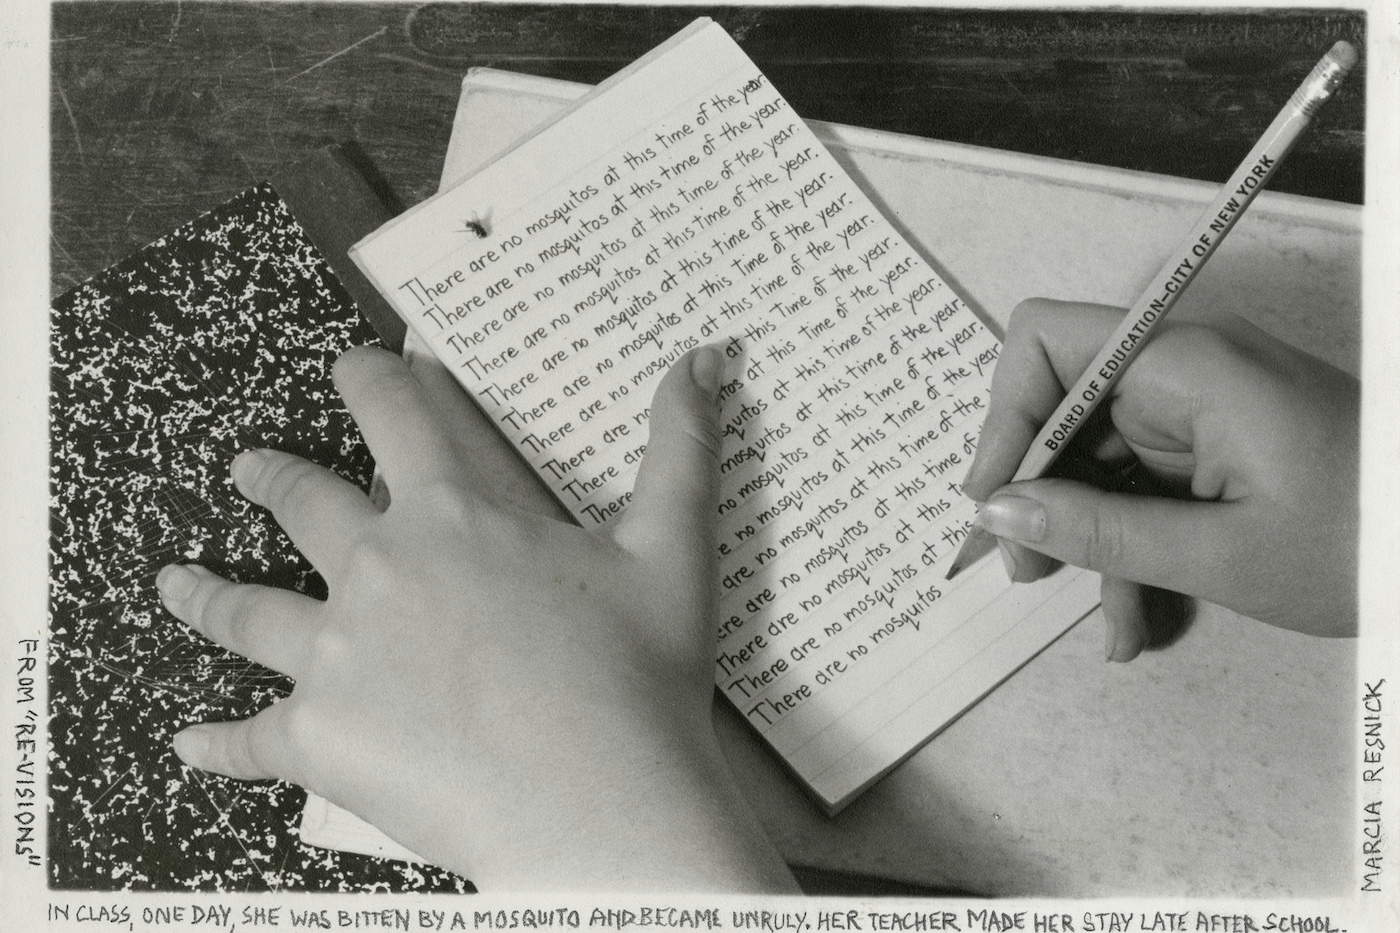 There are no mosquitos at this time of the year.
There are no mosquitos at this time of the year.
There are no mosquitos at this time of the year.
There are no mosquitos at this time of the year.
There are no mosquitos at this time of the year.
There are no mosquitos at this Time of the year.
There are no mosquitos at this time of the year.
There are no at this Time of the year.
There are tos at this time of the year.
There squitos at this time of the year.
mosquitos at this time of the year.
no mosquitos at this time of the year.
e no mosquitos at this Time of the year
are no mosquitos at this time of the
ere are no mosquitos at this time of
There are no mosquitos at this t
There are no mosquitos at this
There are no mosquitos
BOARD OF EDUCATION-CITY OF NEW YORK
FROM "RE-VISIONS"
MARCIA RESNICK
IN CLASS, ONE DAY, SHE WAS BITTEN BY A MOSQUITO AND BECAME UNRULY. HER TEACHER MADE HER STAY LATE AFTER SCHOOL.